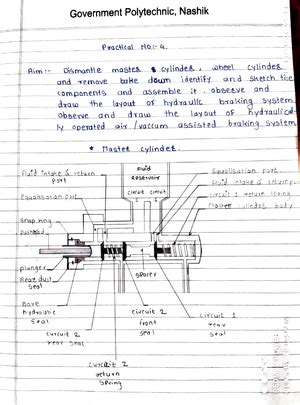 Government Polytechnic, Nashik
Practical No:- 4.
Aim:- Dismantle master cylinder, wheel cylinder
and remove brake down identify and sketch the
components and assemble it. observe and
draw the layout of hydraulic braking system
observe and draw the layout of hydraulical
ly operated air/vacuum assisted braking system
* Master cylinder.
Fluid intake & return
port
Fluid
Reservoir
Equalisation port
Fluid intake & return port
Equalisation port
circuit circuit
circuit 1 return spring
Master cylinder body
snap ring
pushrod
plunger
Rear dust
seal
spacer
Base
hydraulic
seal
circuit 2
rear seal
circuit 2
front
seal
circuit 1
rear
seal
circuit 2
return
spring